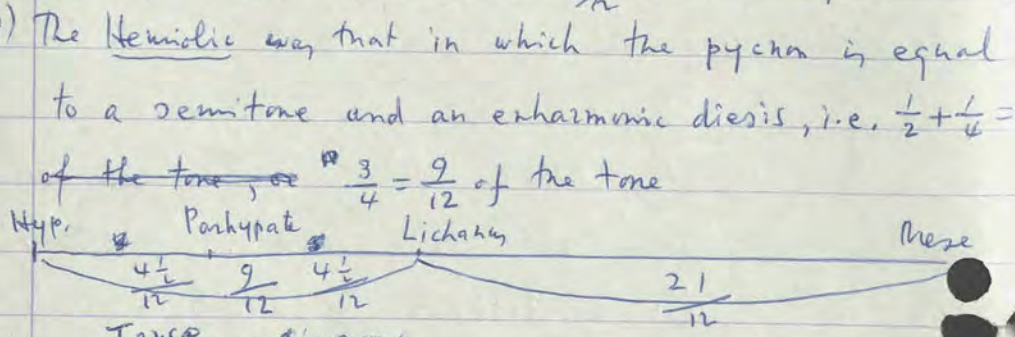 ) The Hemiolic way that in which the pycnon is equal
to a semitone and an enharmonic diesis, i.e. 1/2 + 1/4 =
of the tone, or 3/4 = 9/12 of the tone
Hyp. Parhypate Lichanus Mese
4 1/2 / 12 9/12 4 1/2 / 12 21/12